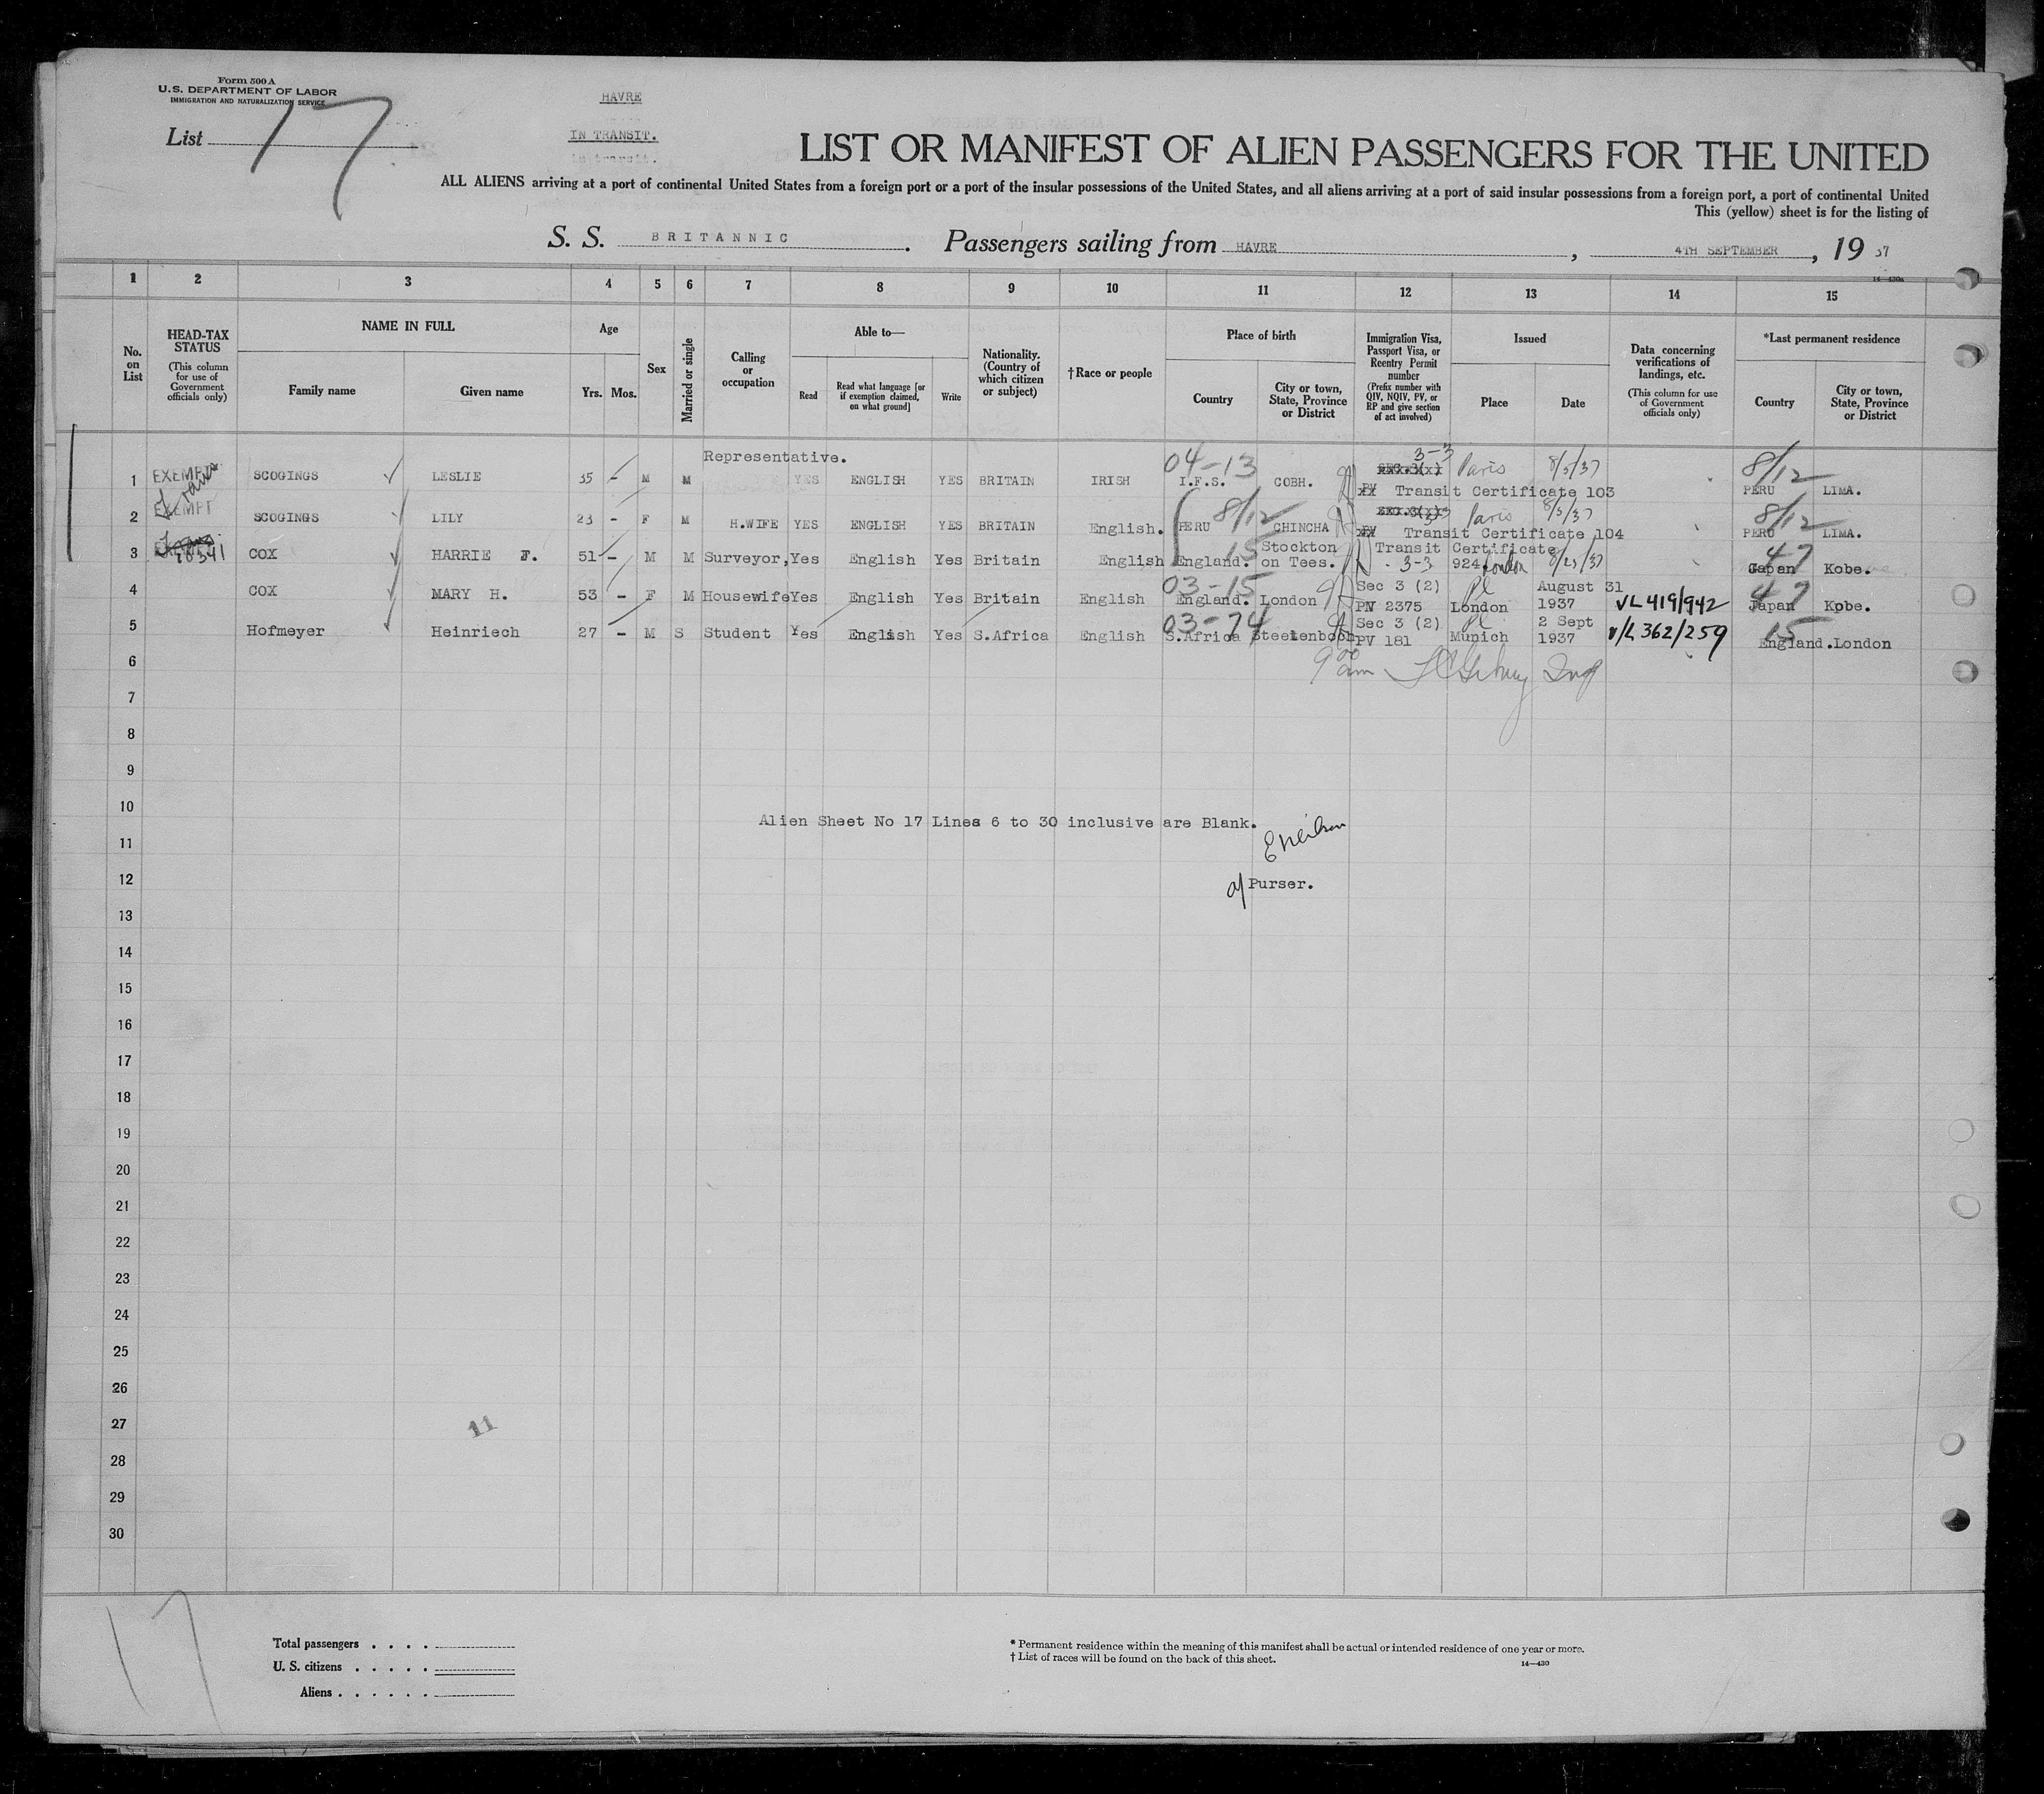 Form 500 A
U.S. DEPARTMENT OF LABOR
IMMIGRATION AND NATURALIZATION SERVICE
List 17
HAVRE
IN TRANSIT.
in transit.
LIST OR MANIFEST OF ALIEN PASSENGERS FOR THE UNITED
ALL ALIENS arriving at a port of continental United States from a foreign port or a port of the insular possessions of the United States, and all aliens arriving at a port of said insular possessions from a foreign port, a port of continental United
This (yellow) sheet is for the listing of
S. S. BRITANNIC. Passengers sailing from HAVRE, 4TH SEPTEMBER, 19 37
14—430a
1 2 3 4 5 6 7 8 9 10 11 12 13 14 15
No. on List
HEAD-TAX STATUS
(This column for use of Government officials only)
NAME IN FULL
Family name
Given name
Age
Yrs. Mos.
Sex
Married or single
Calling or occupation
Able to—
Read
Read what language [or if exemption claimed, on what ground]
Write
Nationality. (Country of which citizen or subject)
†Race or people
Place of birth
Country
City or town, State, Province or District
Immigration Visa, Passport Visa, or Reentry Permit number
(Prefix number with QIV, NQIV, PV, or RP and give section of act involved)
Issued
Place
Date
Data concerning verifications of landings, etc.
(This column for use of Government officials only)
*Last permanent residence
Country
City or town, State, Province or District
Representative. 04-13 3-3 8/12
1 EXEMPT SCOGINGS LESLIE 35 - M M YES ENGLISH YES BRITAIN IRISH I.F.S. COBH. Paris 8/5/37 PERU LIMA.
PV Transit Certificate 103
2 EXEMPT SCOGINGS LILY 23 - F M H.WIFE YES ENGLISH YES BRITAIN English. PERU 8/12 CHINCHA Paris 8/5/37 8/12 PERU LIMA.
PV Transit Certificate 104
3 78341 COX HARRIE F. 51 - M M Surveyor, Yes English Yes Britain English England. 15 Stockton on Tees. Transit Certificate 3-3 924 London 8/25/37 47 Japan Kobe.
4 COX MARY H. 53 - F M Housewife Yes English Yes Britain English 03-15 England. London Sec 3 (2) PV 2375 London August 31 1937 VL 419/942 47 Japan Kobe.
5 Hofmeyer Heinriech 27 - M S Student Yes English Yes S.Africa English 03-74 S.Africa Steelenbosh Sec 3 (2) PV 181 Munich 2 Sept 1937 V/L 362/259 15 England. London
6 9 00 am
7
8
9
10
Alien Sheet No 17 Lines 6 to 30 inclusive are Blank.
11
12 Purser.
13
14
15
16
17
18
19
20
21
22
23
24
25
26
27 11
28
29
30
17
Total passengers . . . .
U. S. citizens . . . . .
Aliens . . . . . .
* Permanent residence within the meaning of this manifest shall be actual or intended residence of one year or more.
† List of races will be found on the back of this sheet.
14—430